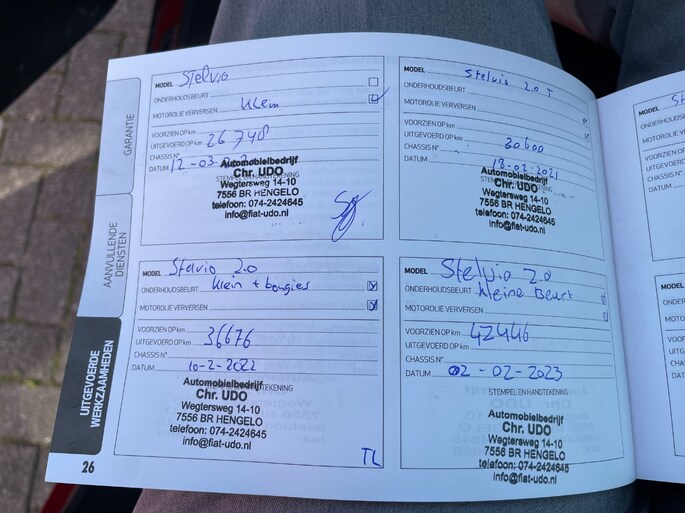 GARANTIE
AANVULLENDE
DIENSTEN
UITGEVOERDE
WERKZAAMHEDEN
26
MODEL Stelvio
ONDERHOUDSBEURT
Klein
MOTOROLIE VERVERSEN
VOORZIEN OP km
UITGEVOERD OP km 26748
CHASSIS N°
DATUM 12-03-
STEMPEL EN HANDTEKENING
Automobielbedrijf
Chr. UDO
Wegtersweg 14-10
7556 BR HENGELO
telefoon: 074-2424645
info@fiat-udo.nl
MODEL Stelvio 2.0 T
ONDERHOUDSBEURT
MOTOROLIE VERVERSEN
VOORZIEN OP km
UITGEVOERD OP km 30600
CHASSIS N°
DATUM 18-02-2021
Automobielbedrijf
Chr. UDO
Wegtersweg 14-10
7556 BR HENGELO
telefoon: 074-2424645
info@fiat-udo.nl
MODEL Stelvio 2.0
ONDERHOUDSBEURT Klein + bougies
MOTOROLIE VERVERSEN
VOORZIEN OP km
UITGEVOERD OP km 36676
CHASSIS N°
DATUM 10-2-2022
Automobielbedrijf
Chr. UDO
Wegtersweg 14-10
7556 BR HENGELO
telefoon: 074-2424645
info@fiat-udo.nl
TL
MODEL Stelvio 2.0
ONDERHOUDSBEURT Kleine Beurt
MOTOROLIE VERVERSEN
VOORZIEN OP km
UITGEVOERD OP km 42446
CHASSIS N°
DATUM 02-02-2023
STEMPEL EN HANDTEKENING
Automobielbedrijf
Chr. UDO
Wegtersweg 14-10
7556 BR HENGELO
telefoon: 074-2424645
info@fiat-udo.nl
MODEL
ONDERHOUDSB
MOTOROLIE VE
VOORZIEN OP
UITGEVOERD
CHASSIS N°
DATUM
MODEL
ONDERHOU
MOTOROLI
VOORZIEN
UITGEVOE
CHASSIS N
DATUM